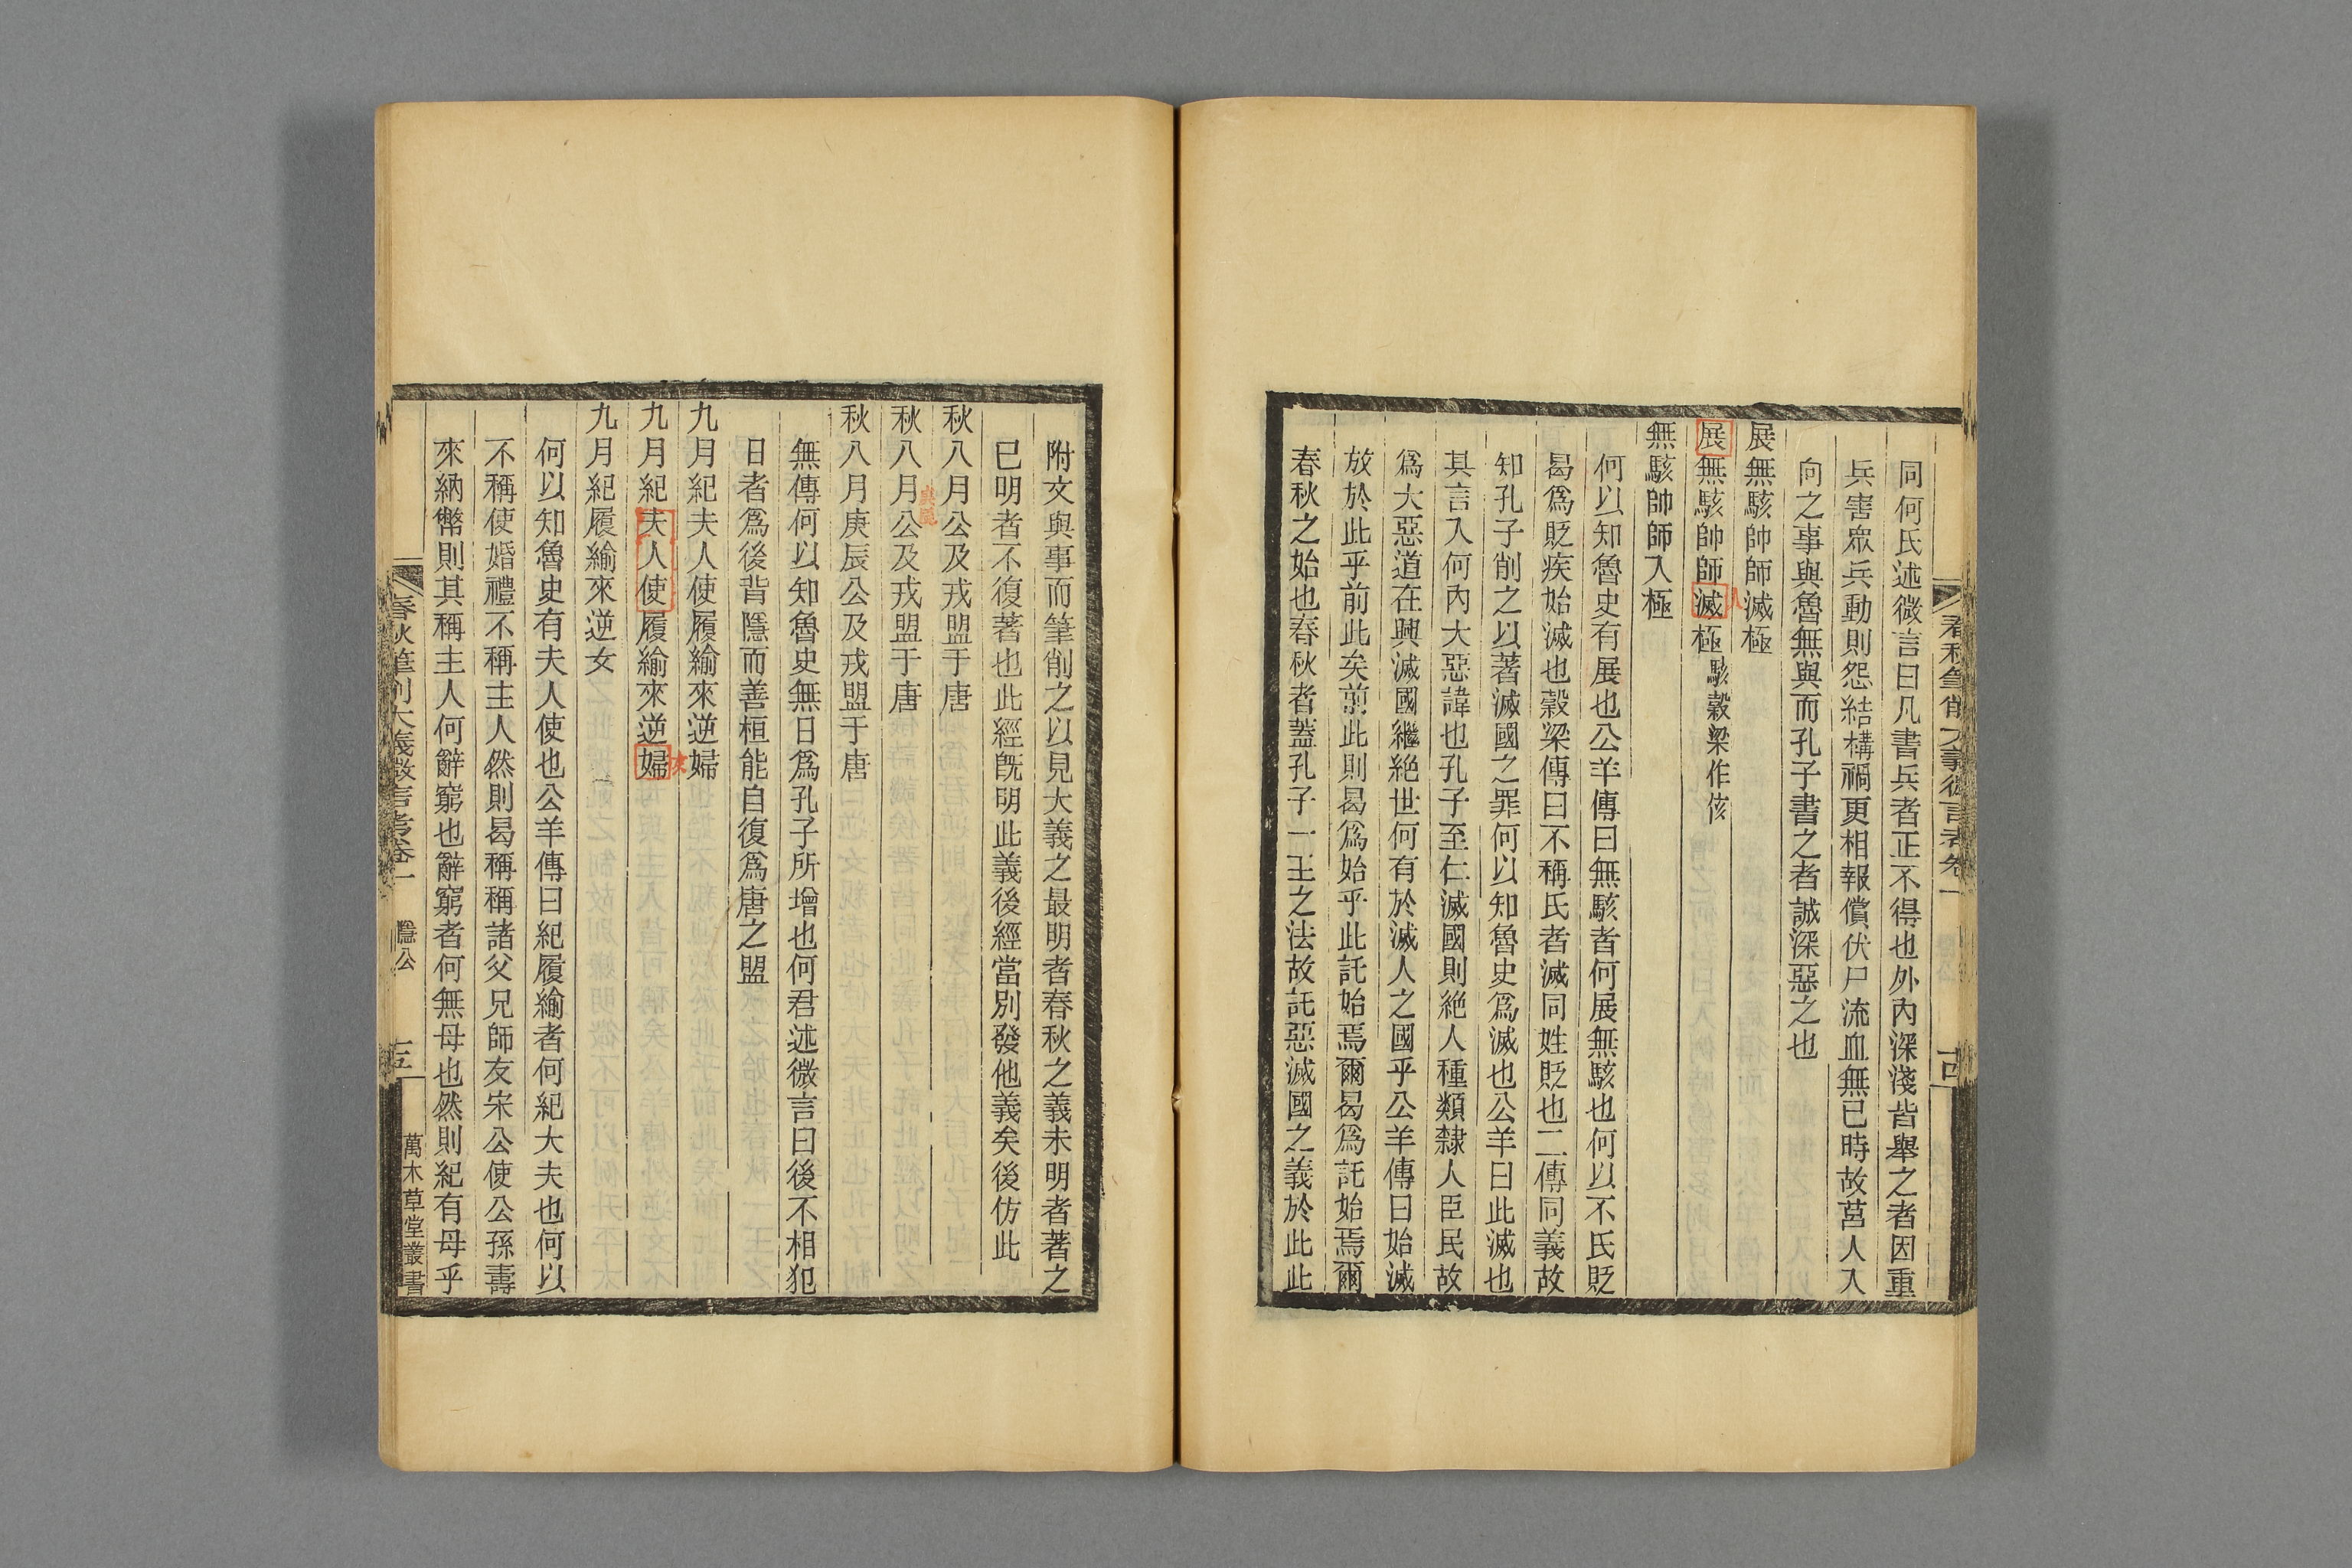 春秋筆削大義微言考卷一
同何氏述微言曰凡書兵者正不得也外內深淺皆舉之者因重
兵害眾兵動則怨結構禍更相報償伏尸流血無已時故莒人入
向之事與魯無與而孔子書之者誠深惡之也
展無駭帥師滅極
入
展無駭帥師滅極駭穀梁作侅
無駭帥師入極
何以知魯史有展也公羊傳曰無駭者何展無駭也何以不氏貶
曷爲貶疾始滅也穀梁傳曰不稱氏者滅同姓貶也二傳同義故
知孔子削之以著滅國之罪何以知魯史爲滅也公羊曰此滅也
其言入何內大惡諱也孔子至仁滅國則絕人種類隸人臣民故
爲大惡道在興滅國繼絕世何有於滅人之國乎公羊傳曰始滅
放於此乎前此矣前此則曷爲始乎此託始焉爾曷爲託始焉爾
春秋之始也春秋者蓋孔子一王之法故託惡滅國之義於此此
附文與事而筆削之以見大義之最明者春秋之義未明者著之
已明者不復著也此經既明此義後經當別發他義矣後仿此
秋八月公及戎盟于唐
庚辰
秋八月公及戎盟于唐
秋八月庚辰公及戎盟于唐
無傳何以知魯史無日爲孔子所增也何君述微言曰後不相犯
日者爲後背隱而善桓能自復爲唐之盟
九月紀夫人使履緰來逆婦
女
九月紀夫人使履緰來逆婦
九月紀履緰來逆女
何以知魯史有夫人使也公羊傳曰紀履緰者何紀大夫也何以
不稱使婚禮不稱主人然則曷稱稱諸父兄師友宋公使公孫壽
來納幣則其稱主人何辭窮也辭窮者何無母也然則紀有母乎
春秋筆削大義微言考卷一 隱公 萬木草堂叢書